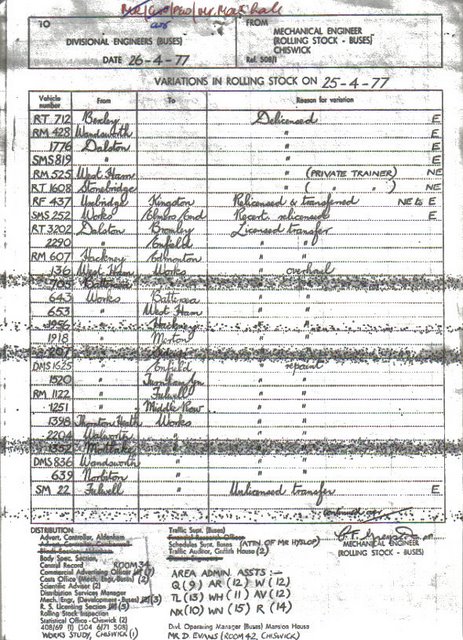 TO
FROM
DIVISIONAL ENGINEERS (BUSES)
MECHANICAL ENGINEER
(ROLLING STOCK - BUSES)
CHISWICK
DATE 26-4-77
Ref. 508/1
VARIATIONS IN ROLLING STOCK ON 25-4-77
Vehicle number From To Reason for variation
RT 712 Bexley Delicensed E
RM 428 Wandsworth " E
1776 Dalston " E
SMS 819 " " E
RM 525 West Ham " (PRIVATE TRAINER) NE
RT 1608 Stonebridge " ( " " ) NE
RF 437 Uxbridge Kingston Relicensed & transferred NE to E
SMS 252 Works Elmers End Recert. relicensed E
RT 3202 Dalston Bromley Licensed transfer
2290 " Enfield " "
RM 607 Hackney Edmonton " "
136 West Ham Works " overhaul
705 Battersea " " "
643 Works Battersea " "
653 " West Ham " "
1956 " Hackney " "
1918 " Merton " "
207 " " "
DMS 1625 " Enfield " repaint
1520 " Turnham Grn " "
RM 1122 " Fulwell " "
1251 " Middle Row " "
1398 Thornton Heath Works " "
2204 Walworth " " "
1352 Mortlake " " "
DMS 836 Wandsworth " " "
639 Norbiton " " "
SM 22 Fulwell " Unlicensed transfer E
DISTRIBUTION
Advert. Controller, Aldenham
Body Spec. Section,
Central Record ROOM 34
Commercial Advertising Officer
Costs Office (Mech. Engr. Buses) (2)
Scientific Adviser (2)
Distribution Services Manager
Mech. Engr. (Development - Buses)
R. S. Licensing Section
Rolling Stock Inspection
Statistical Office - Chiswick (2)
408/69 (1) 504 6/71 508)
WORKS STUDY, CHISWICK (1)
Traffic Supt. (Buses)
Financial Research Officer
Schedules Supt. Buses (ATTN. OF MR HYSLOP)
Traffic Auditor, Griffith House (2)
AREA ADMIN. ASSTS :-
Q (9) AR (12) W (12)
TL (13) WH (11) AV (12)
NX (10) WN (15) R (14)
Divl. Operating Manager (Buses) Mansion House
MR D. EVANS (ROOM 42, CHISWICK)
MECHANICAL ENGINEER
(ROLLING STOCK - BUSES)